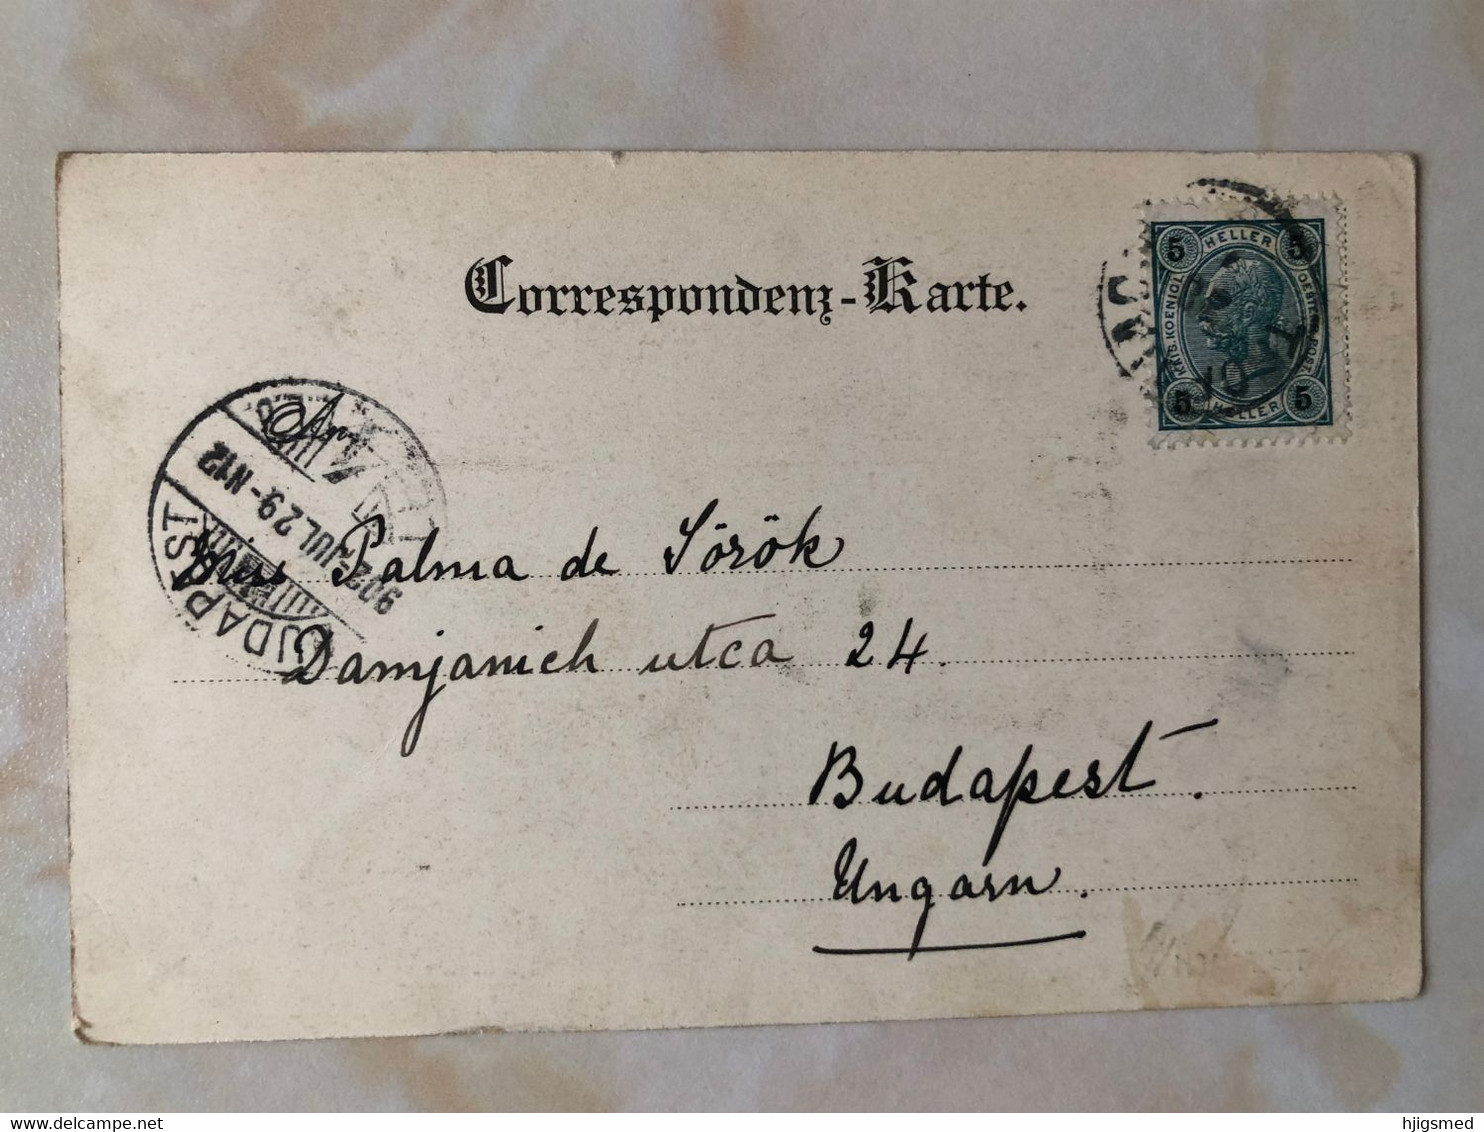 Correspondenz-Karte.
5 HELLER 5
KAIS. KOENIGL.
OESTERR. POST.
5 HELLER 5
BUDAPEST
902 JUL 29 - N12
An
Miss Palma de Sörök
Damjanich utca 24.
Budapest.
Ungarn.
www.delcampe.net
hjigsmed